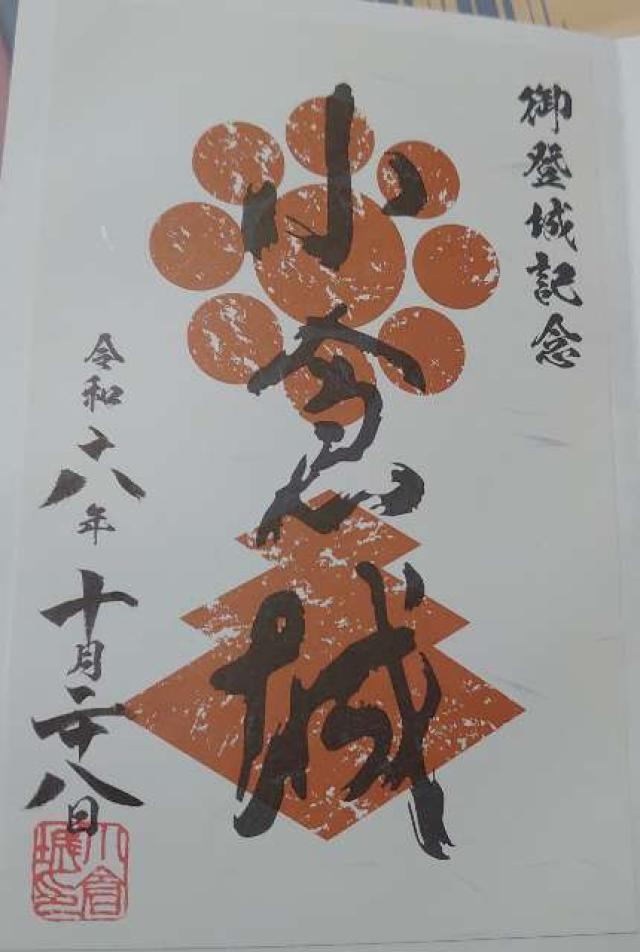 御登城記念
小倉城
令和六年十月二十八日
小倉城印